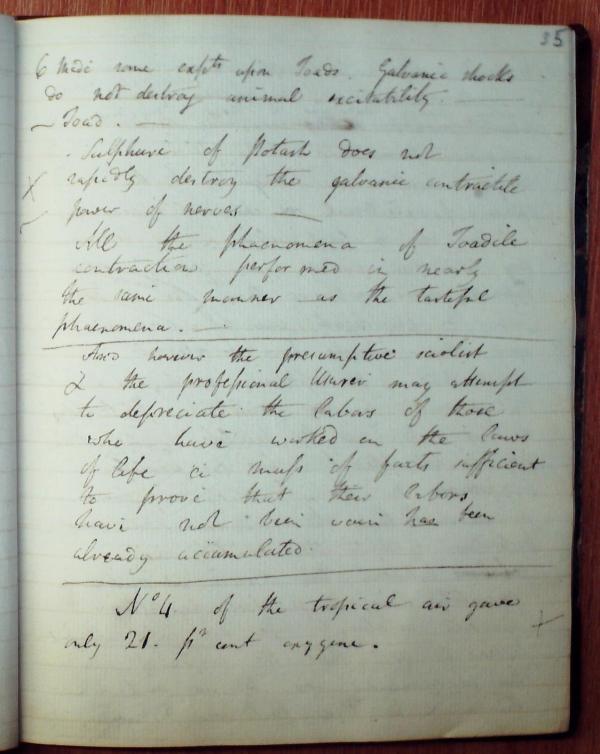 35
6 Made some expts upon Toads. Galvanic shocks
do not destroy animal excitability.
— Toad. —
- Sulphure of Potash does not
rapidly destroy the galvanic contractile
power of nerves —
All the phaenomena of Toadile
contraction performed in nearly
the same manner as the tasteful
phaenomena. —
And however the presumptive sciolist
& the professional Usurer may attempt
to depreciate the labors of those
who have worked on the laws
of life a mass of facts sufficient
to prove that their labors
have not been vain has been
already accumulated.
No 4 of the tropical air gave
only 21. pr cent oxygene.